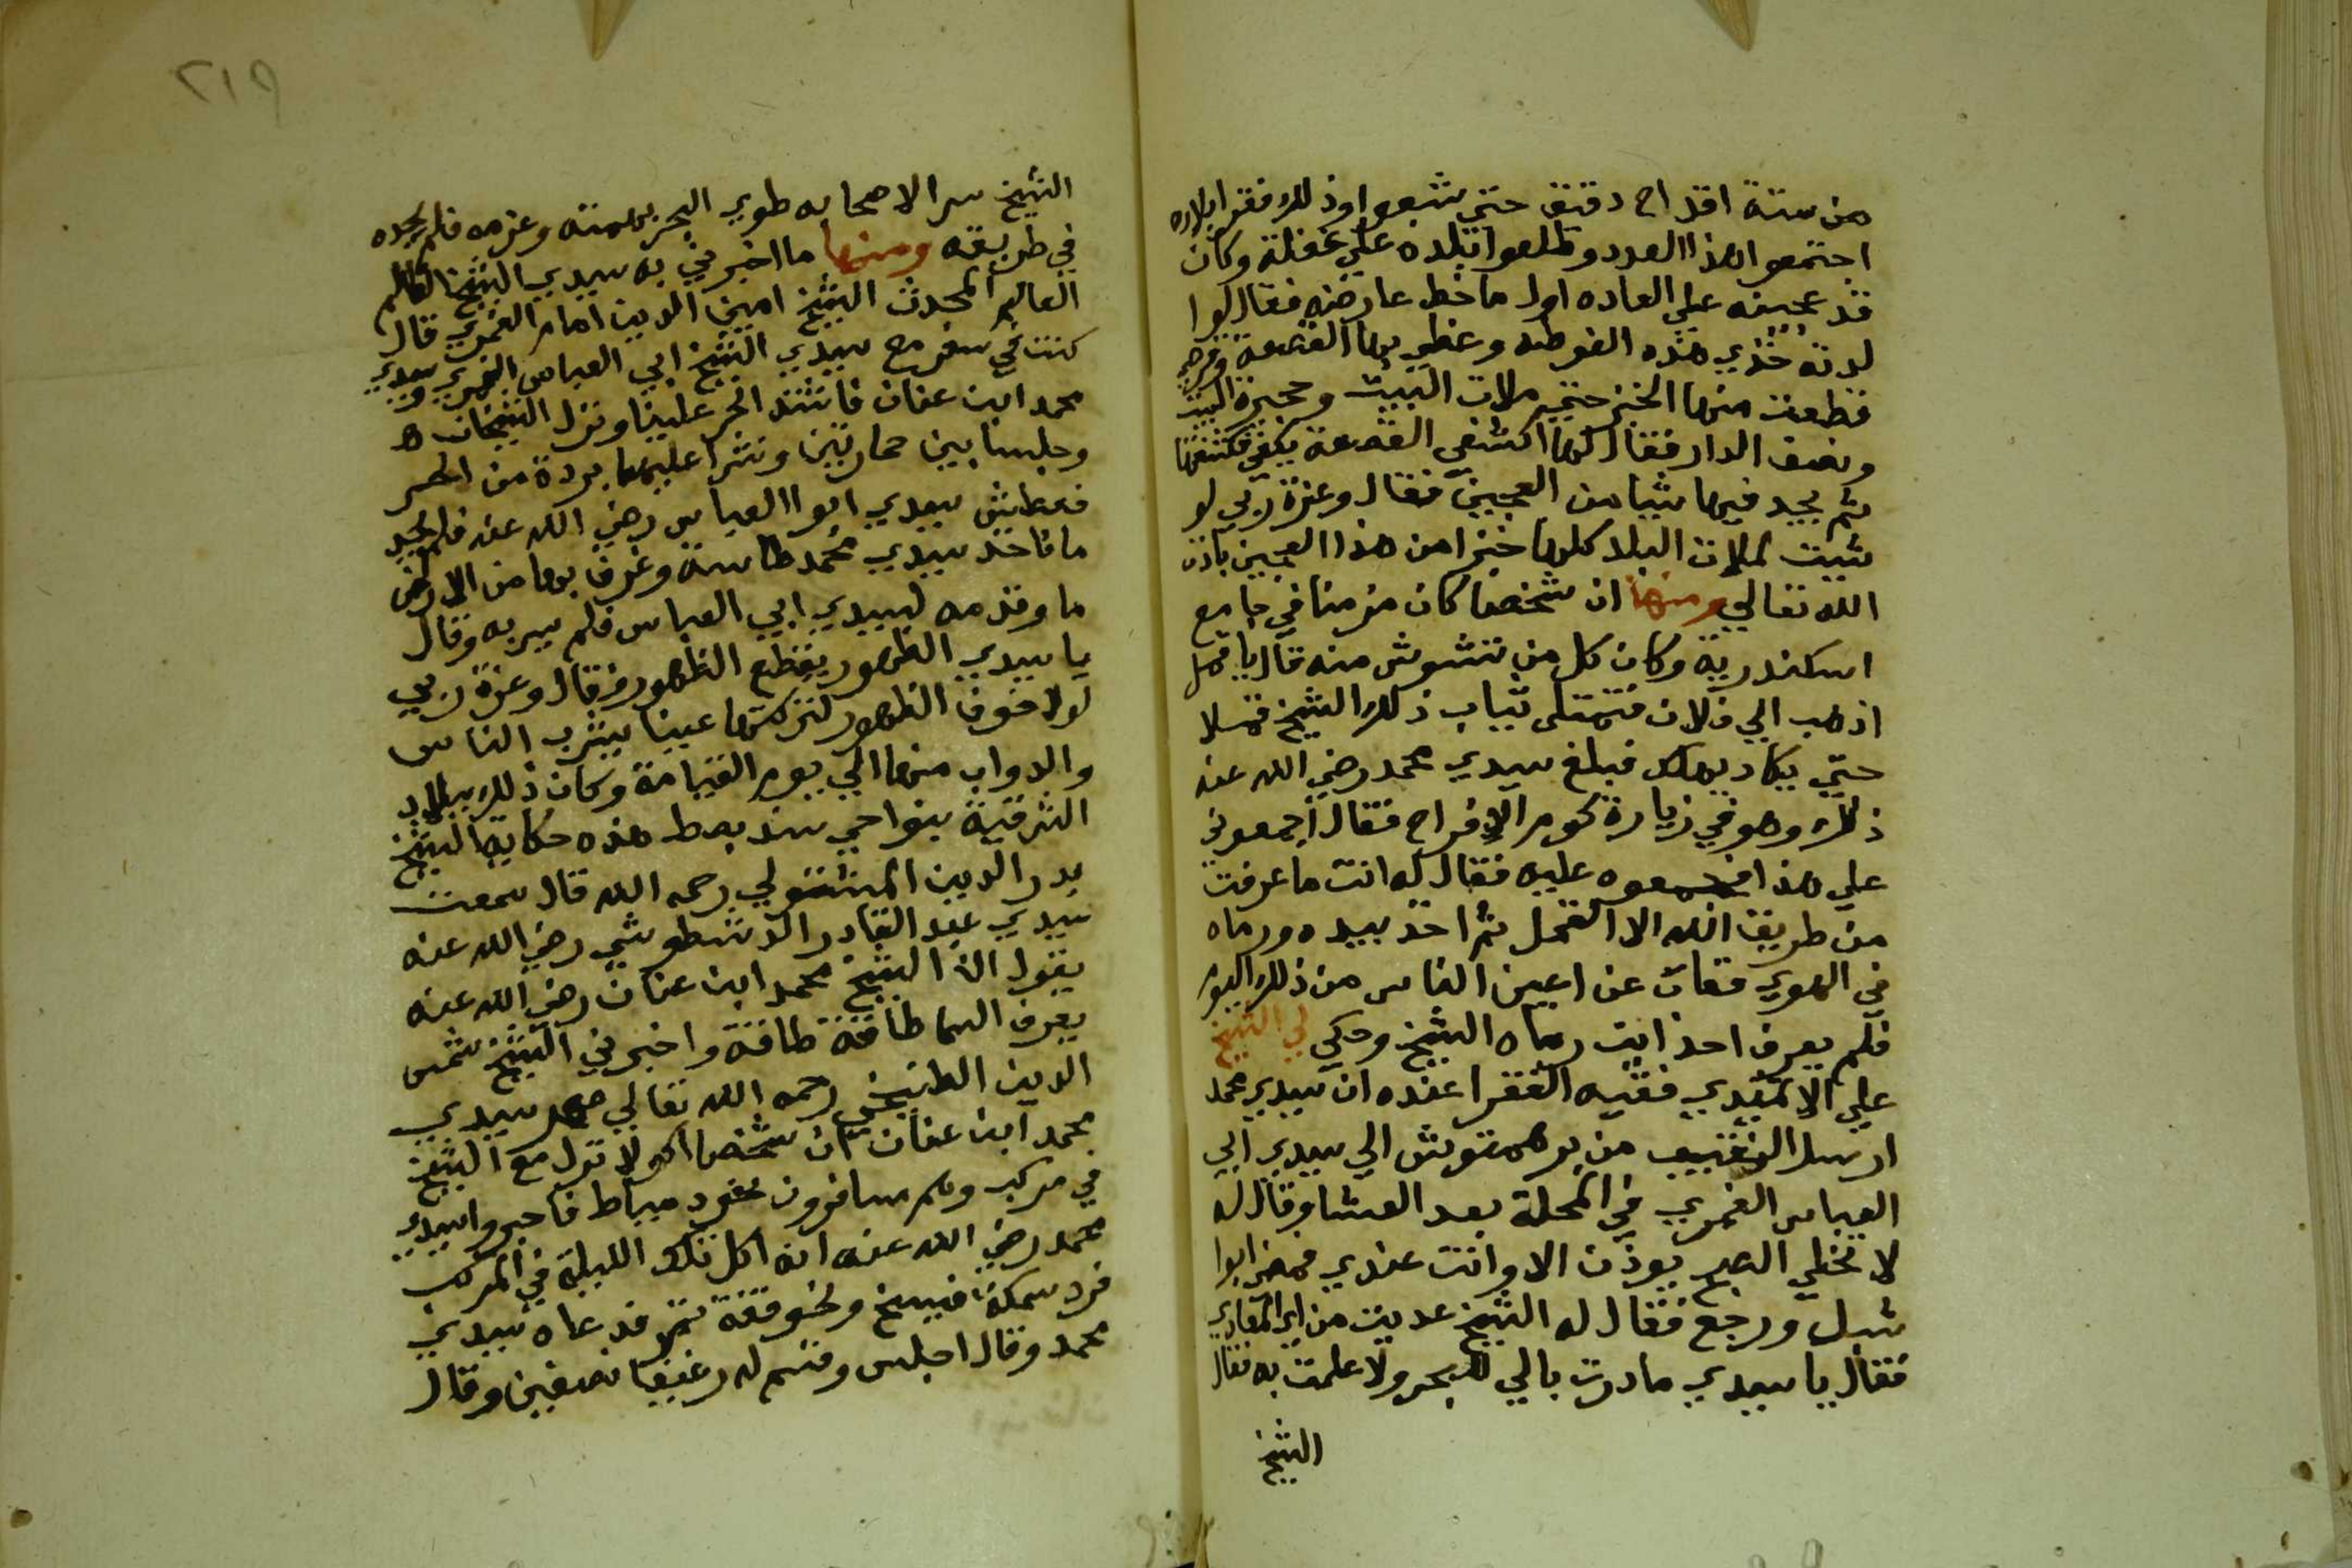 من ستة اقداح دقيق حتي شبعوا وذلك فقرا بلاده
اجتمعوا هذا العدد وطلعوا بلده علي غفلة وكان
قد عجينه علي العاده اول ما خط عارضه فقال لوا
لدته خذي هذه الفوطه وغطي بها القصعة وقرصي
فقطعت منها الخبز حتي ملات البيت وحجيرة البيت
ونصف الدار فقال لها اكشفي القصعة يكفي فكشفتها
فلم يجد فيها شيا من العجين فقال وعزة ربي لو
شيت لملات البلد كلها خبزا من هذا العجين باذن
الله تعالي ومنها ان شخصا كان مزمنا في جامع
اسكندرية وكان كل من تشوش منه قال يا قمل
اذهب الي فلان فتمتلي ثياب ذلك الشيخ قملا
حتي يكاد يهلك فبلغ سيدي محمد رضي الله عنه
ذلك وهو في زيارة كوم الافراح فقال اجمعوني
علي هذا فجمعوه عليه فقال له انت ما عرفت
من طريق الله الا القمل ثم اخذ بيده ورماه
في الهوي فغاب عن اعين الناس من ذلك اليوم
فلم يعرف احد اين رماه الشيخ وحكي لي الشيخ
علي الاتميدي فقيه الفقرا عنده ان سيدي محمد
ارسل النقيب من برهمتوش الي سيدي ابي
العباس الغمري في المحلة بعد العشا وقال له
لا تخلي الصبح يوذن الا وانت عندي فمضي ابوا
شبل ورجع فقال له الشيخ عديت من اي المعادي
فقال يا سيدي ما درت بالي للبحر ولا علمت به فقال
الشيخ
٢١٩
الشيخ سرا لاصحابه طوي البحر بهمته وعزمه فلم يجده
في طريقه ومنها ما اخبرني به سيدي الشيخ العالم
العالم المحدث الشيخ امين الدين امام الغمري قال
كنت في سفر مع سيدي الشيخ ابي العباس الغمري وسيدي
محمد ابن عنان فاشتد الحر علينا ونزل الشيخان
وجلسا بين حمارتين ونشرا عليهما بردة من الحر
فعطش سيدي ابوا العباس رضي الله عنه فلم يجد
ما فاخذ سيدي محمد طاسة وغرف بها من الارض
ما وقدمه لسيدي ابي العباس فلم يسربه وقال
يا سيدي الظهور يقطع الظهور فقال وعزة ربي
لولا خوف الظهور لتركتها عينا يشرب الناس
والدواب منها الي يوم القيامة وكان ذلك ببلاد
الشرقية بنواحي سنديبط هذه حكاية الشيخ
بدر الدين المشتولي رحمه الله قال سمعت
سيدي عبد القادر الدشطوشي رضي الله عنه
يقول ان الشيخ محمد ابن عنان رضي الله عنه
يعرف السما طاقة طاقة واخبرني الشيخ شمس
الدين الطنيخي رحمه الله تعالي صهر سيدي
محمد ابن عنان ان شخصا اكولا نزل مع الشيخ
في مركب وهم مسافرون نحو دمياط فاخبروا سيدي
محمد رضي الله عنه انه اكل تلك الليلة في المركب
فرد سمكة فسيخ ونحو قفة تمر فدعاه سيدي
محمد وقال اجلس وقسم له رغيفا نصفين وقال